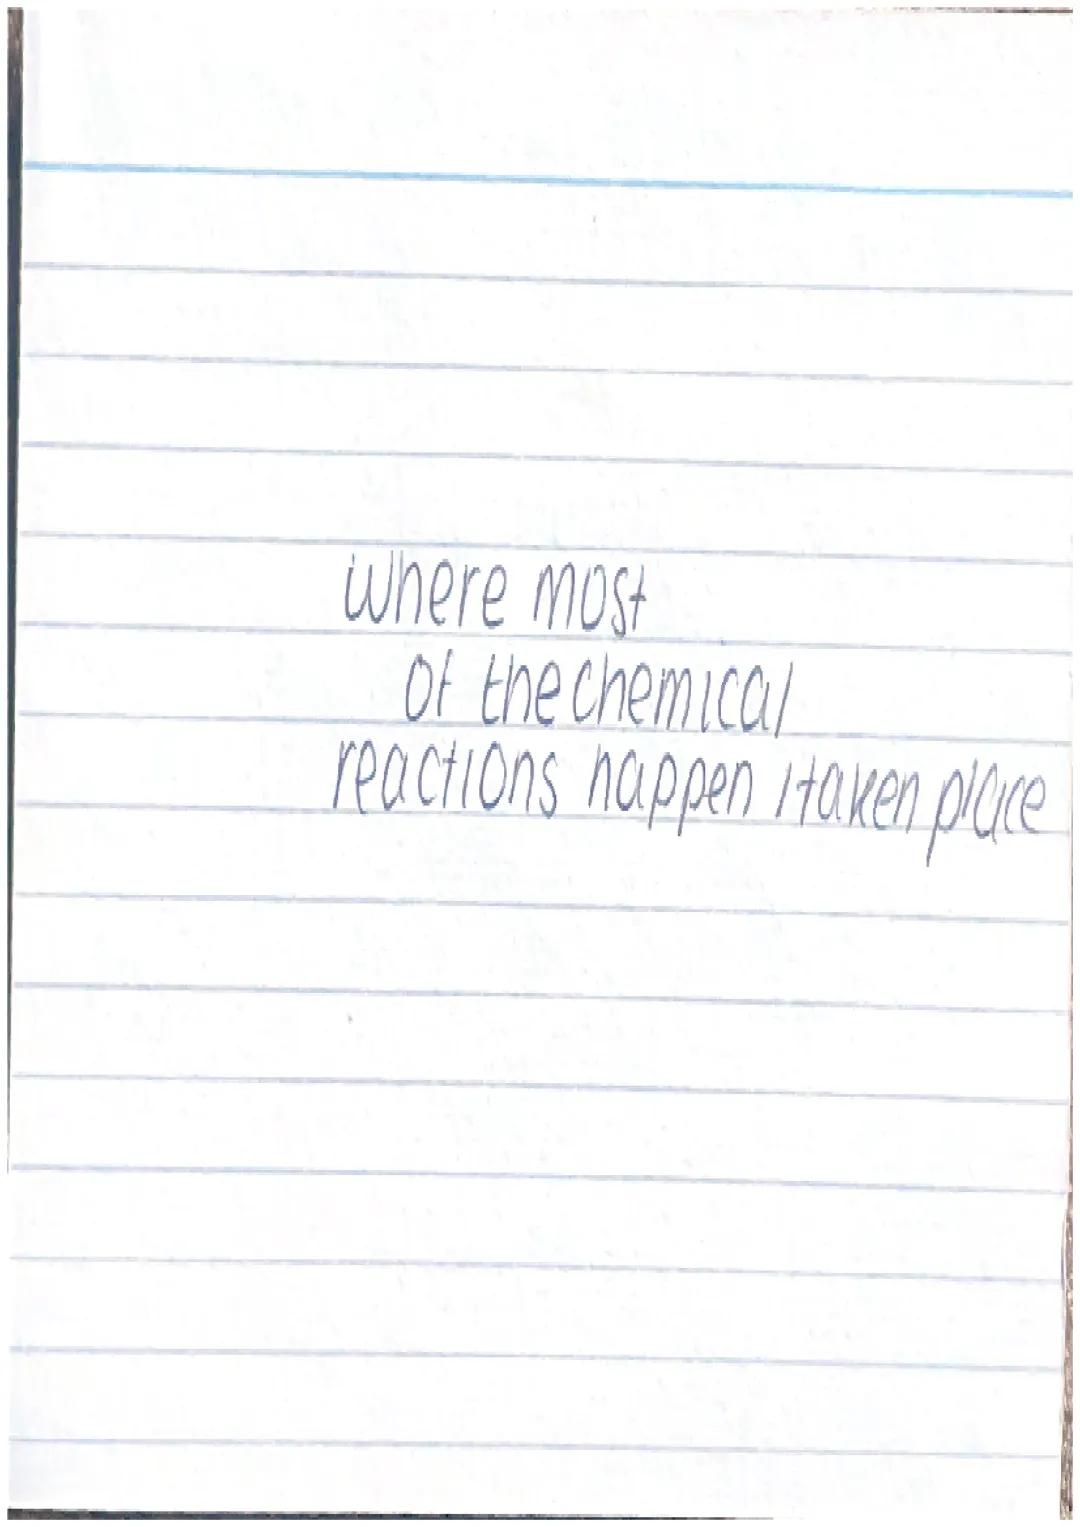 where most
of the chemical
reactions happen /taken place